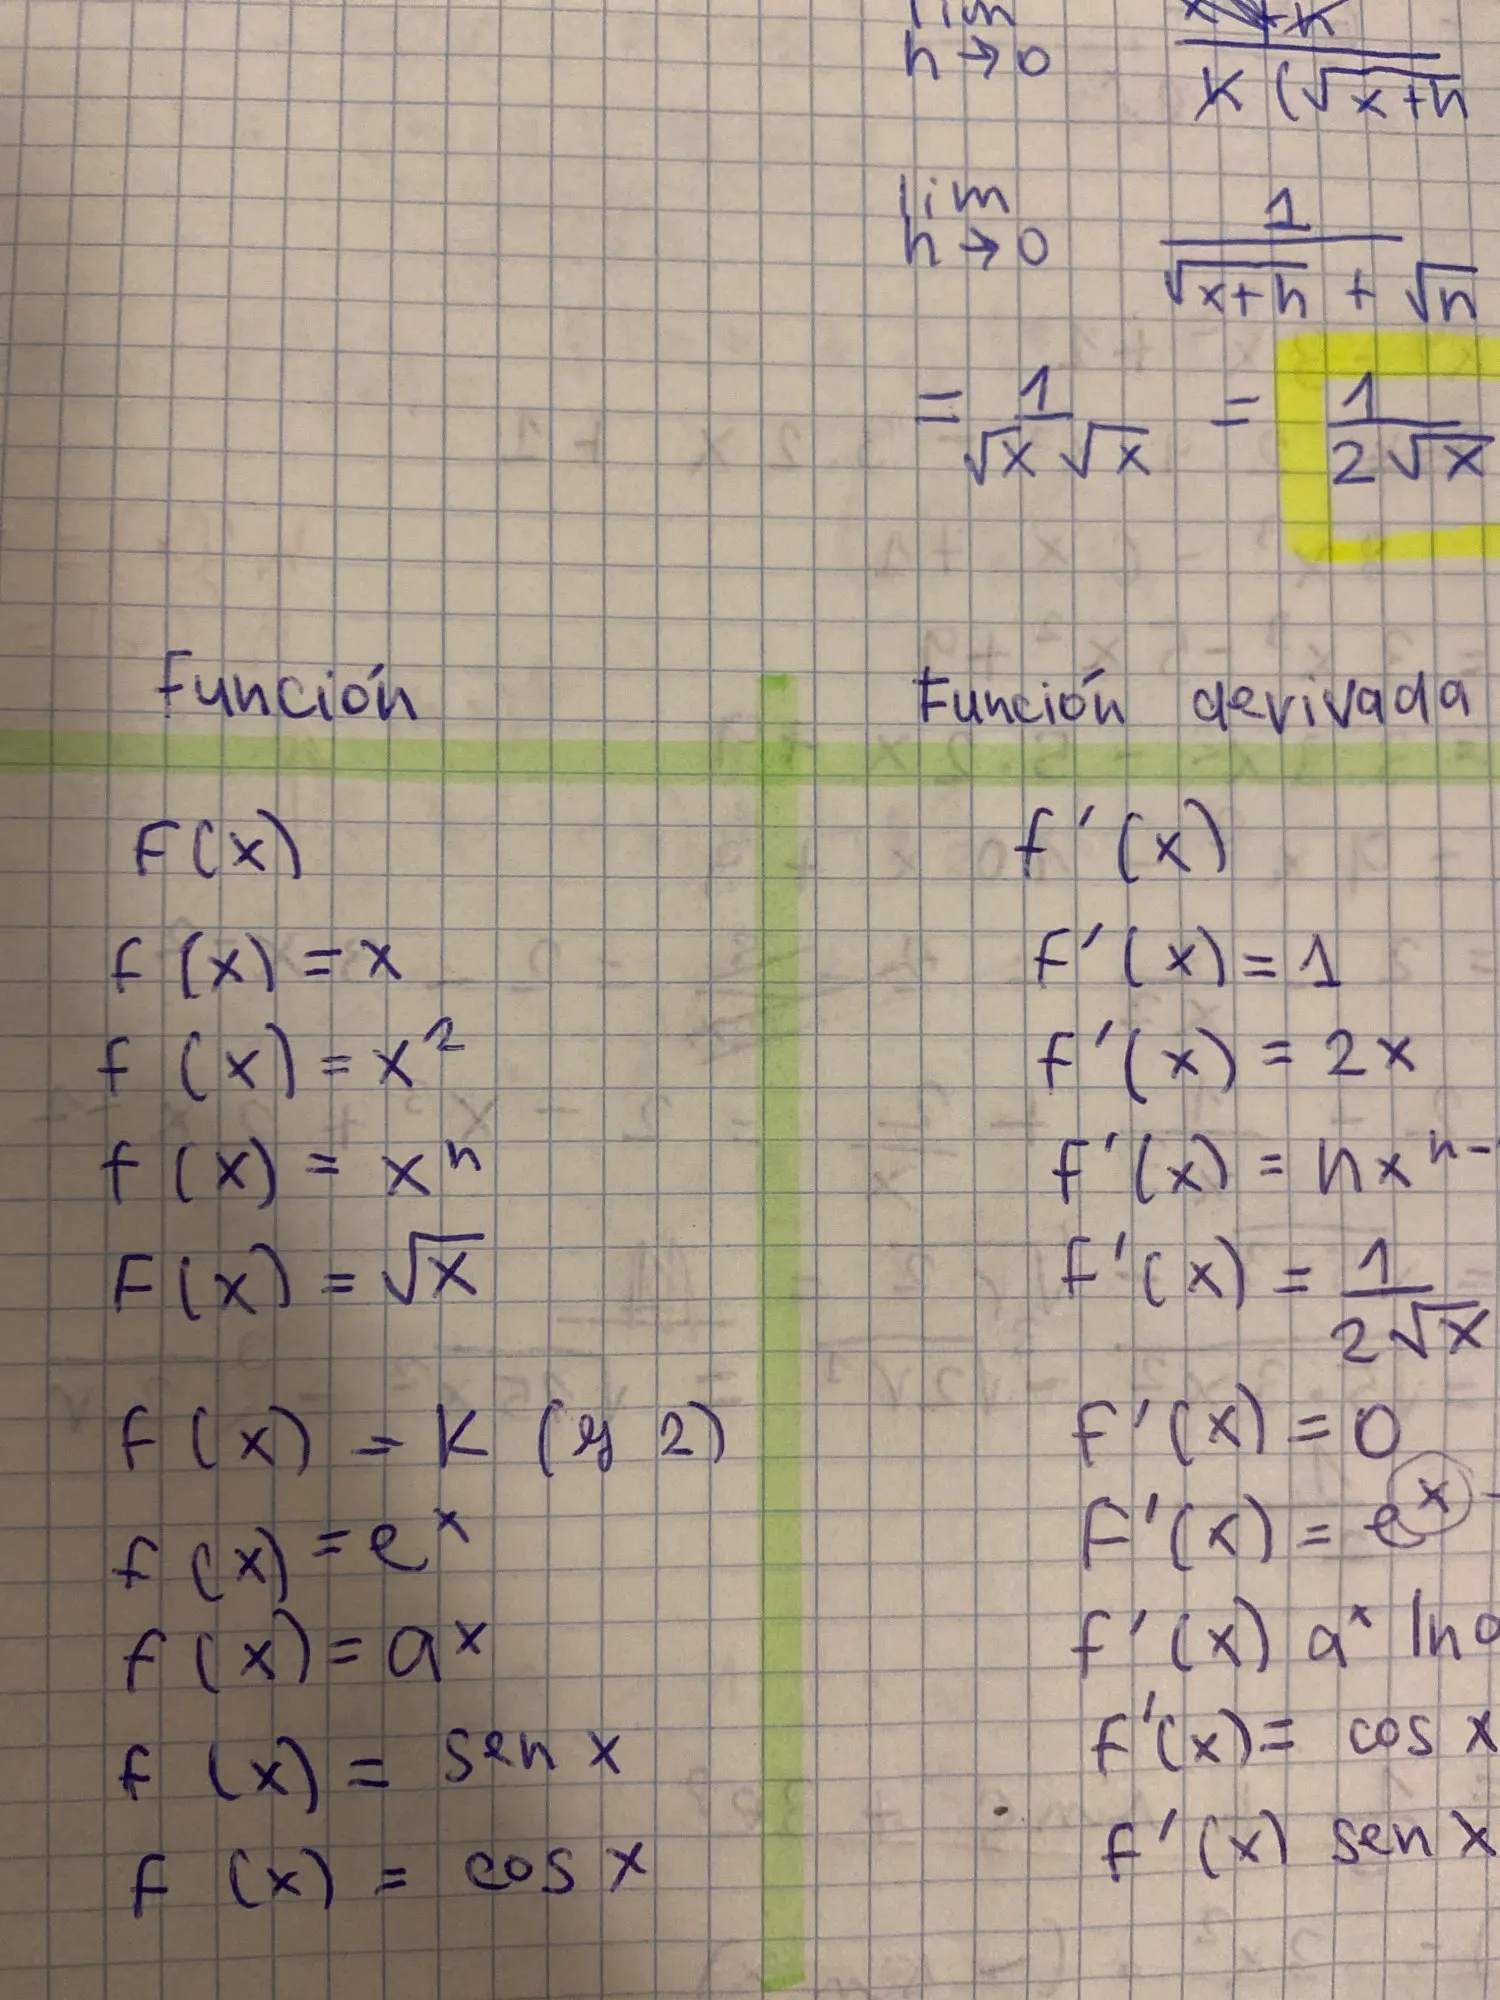 lim
h→0 x+k / K (√x+h
lim
h→0 1 / √x+h + √h
= 1 / √x √x = 1 / 2√x
Función Función derivada
F(x) f'(x)
f(x) = x f'(x) = 1
f(x) = x² f'(x) = 2x
f(x) = xⁿ f'(x) = nxⁿ⁻
F(x) = √x f'(x) = 1 / 2√x
f(x) = K (y 2) f'(x) = 0
f(x) = eˣ F'(x) = eˣ -
f(x) = aˣ f'(x) aˣ ln a
f(x) = sen x f'(x) = cos x
f(x) = cos x f'(x) sen x